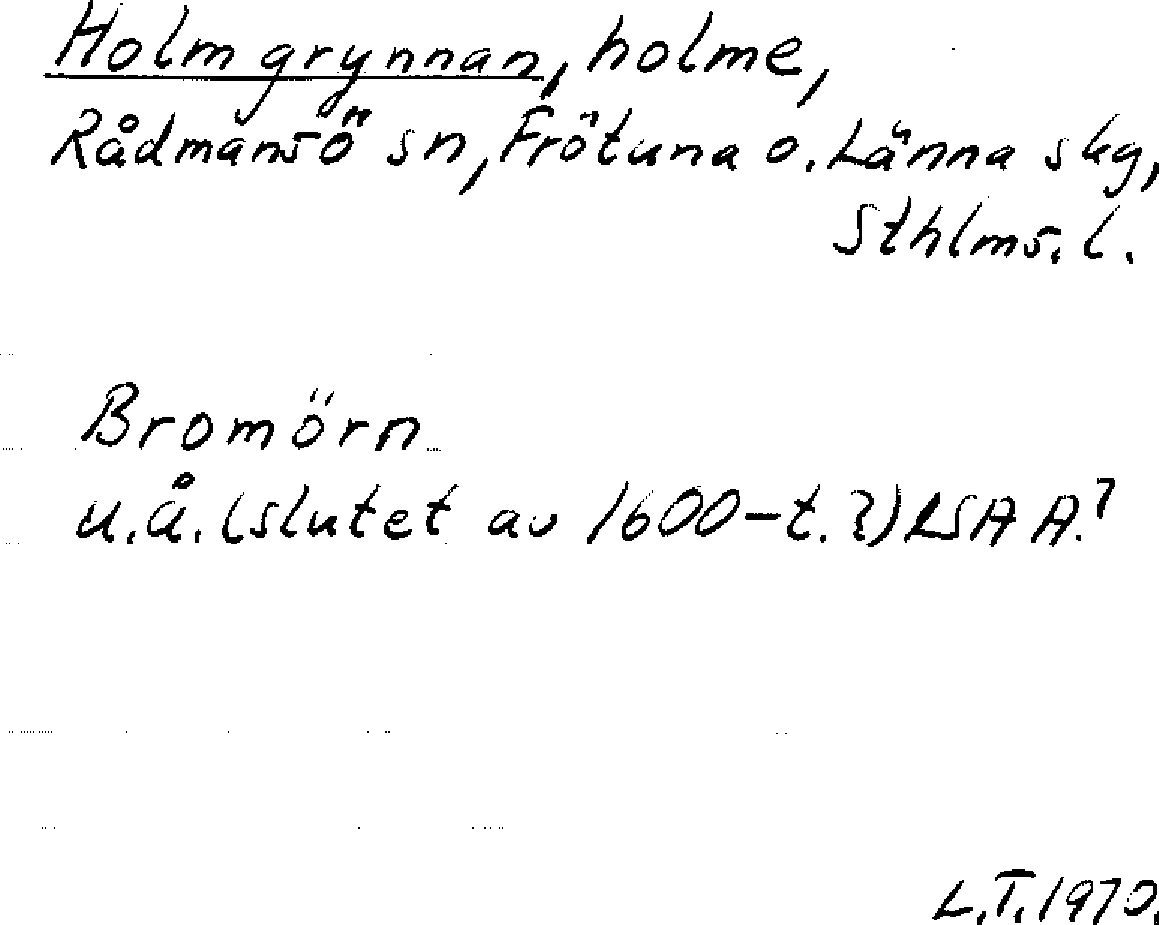 Holmgrynnan, holme,
Rådmansö sn, Frötuna o. Länna skg,
Sthlms. l.
Bromörn
u.å. (slutet av 1600-t.?) LSA A.?
L.T. 1970.